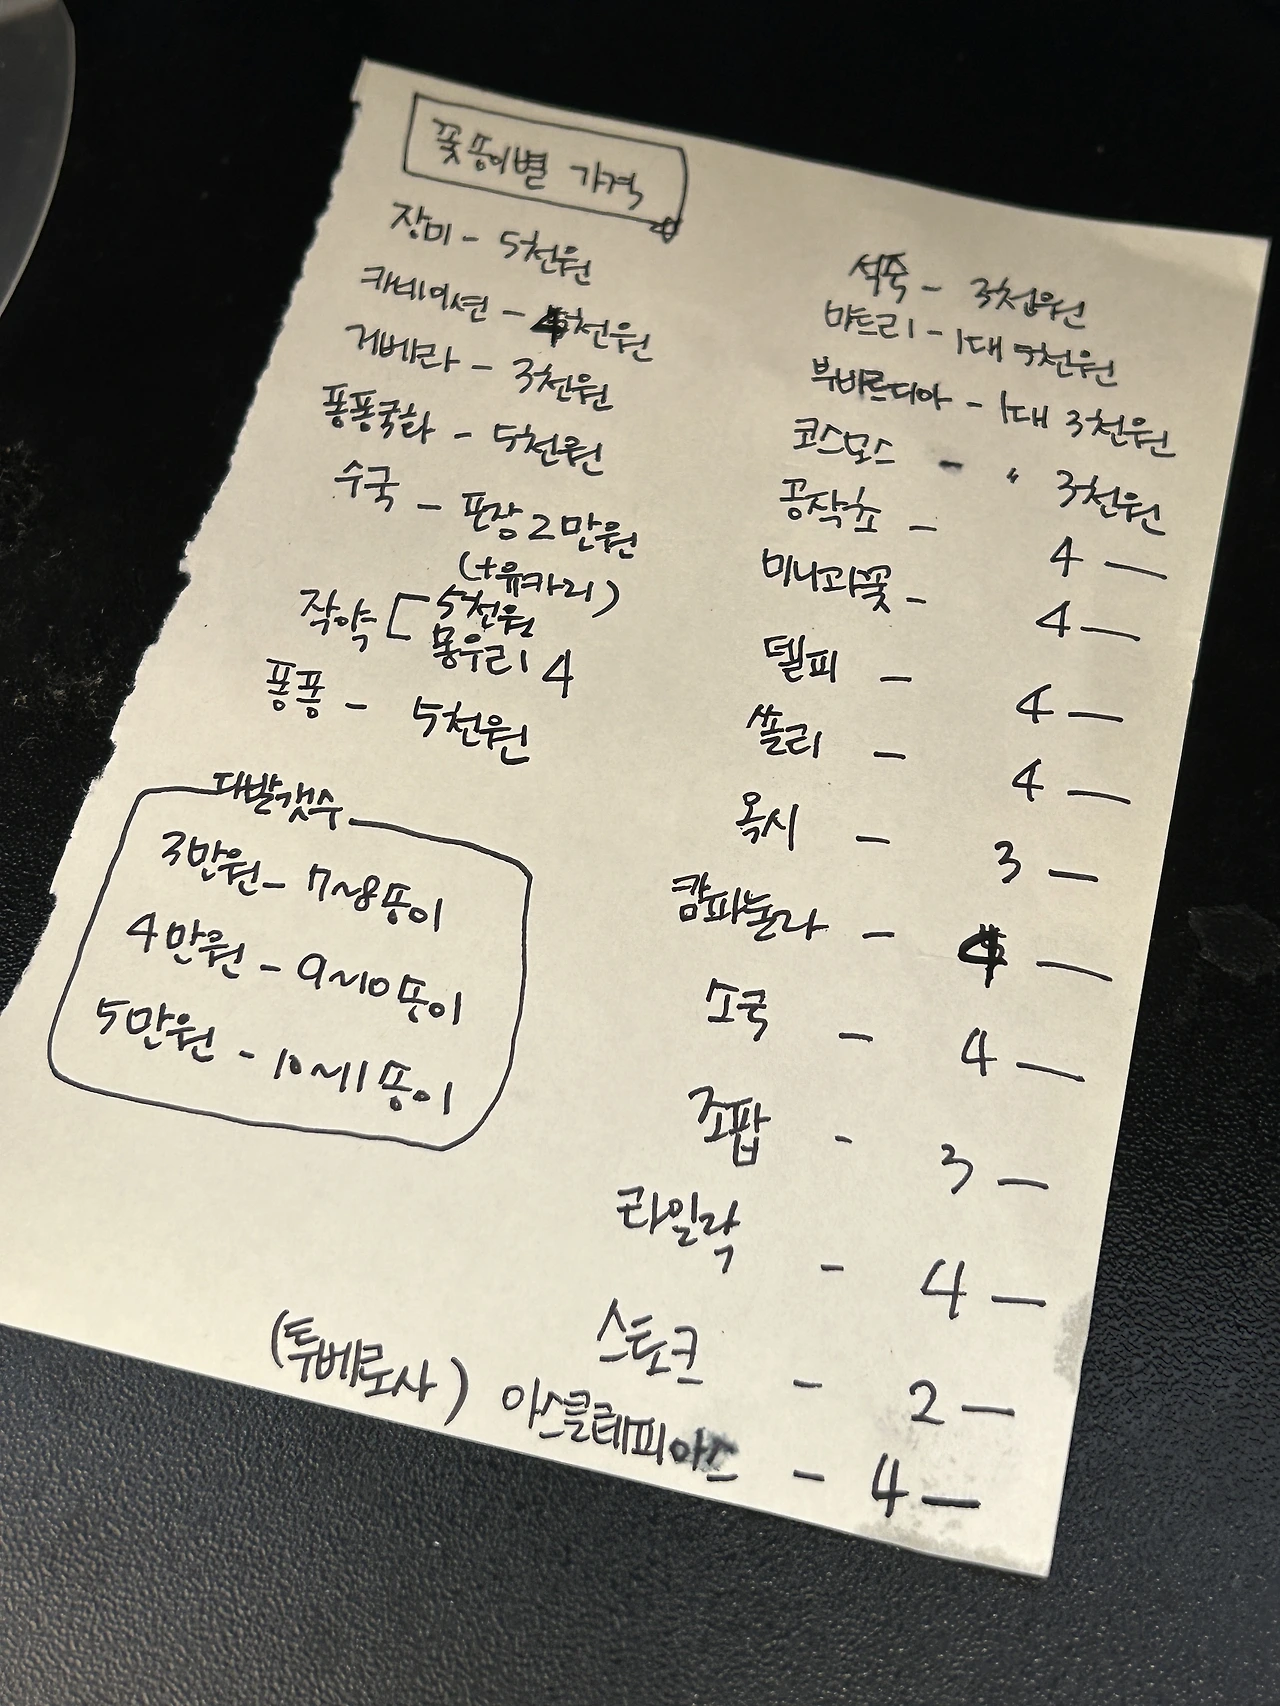 꽃송이별 가격
장미 - 5천원
카네이션 - 4천원
거베라 - 3천원
퐁퐁국화 - 5천원
수국 - 포장 2만원
(+유카리)
작약 [ 5천원
몽우리 4
퐁퐁 - 5천원
다발갯수
3만원 - 7~8송이
4만원 - 9~10송이
5만원 - 10~11송이
석죽 - 3천원
마트리 - 1대 5천원
부바르디아 - 1대 3천원
코스모스 - 〃 3천원
공작초 - 4 —
미니과꽃 - 4 —
델피 - 4 —
쏠리 - 4 —
옥시 - 3 —
캄파눌라 - 4 —
소국 - 4 —
조팝 - 3 —
라일락 - 4 —
스토크 - 2 —
(투베로사) 아스클레피아스 - 4 —